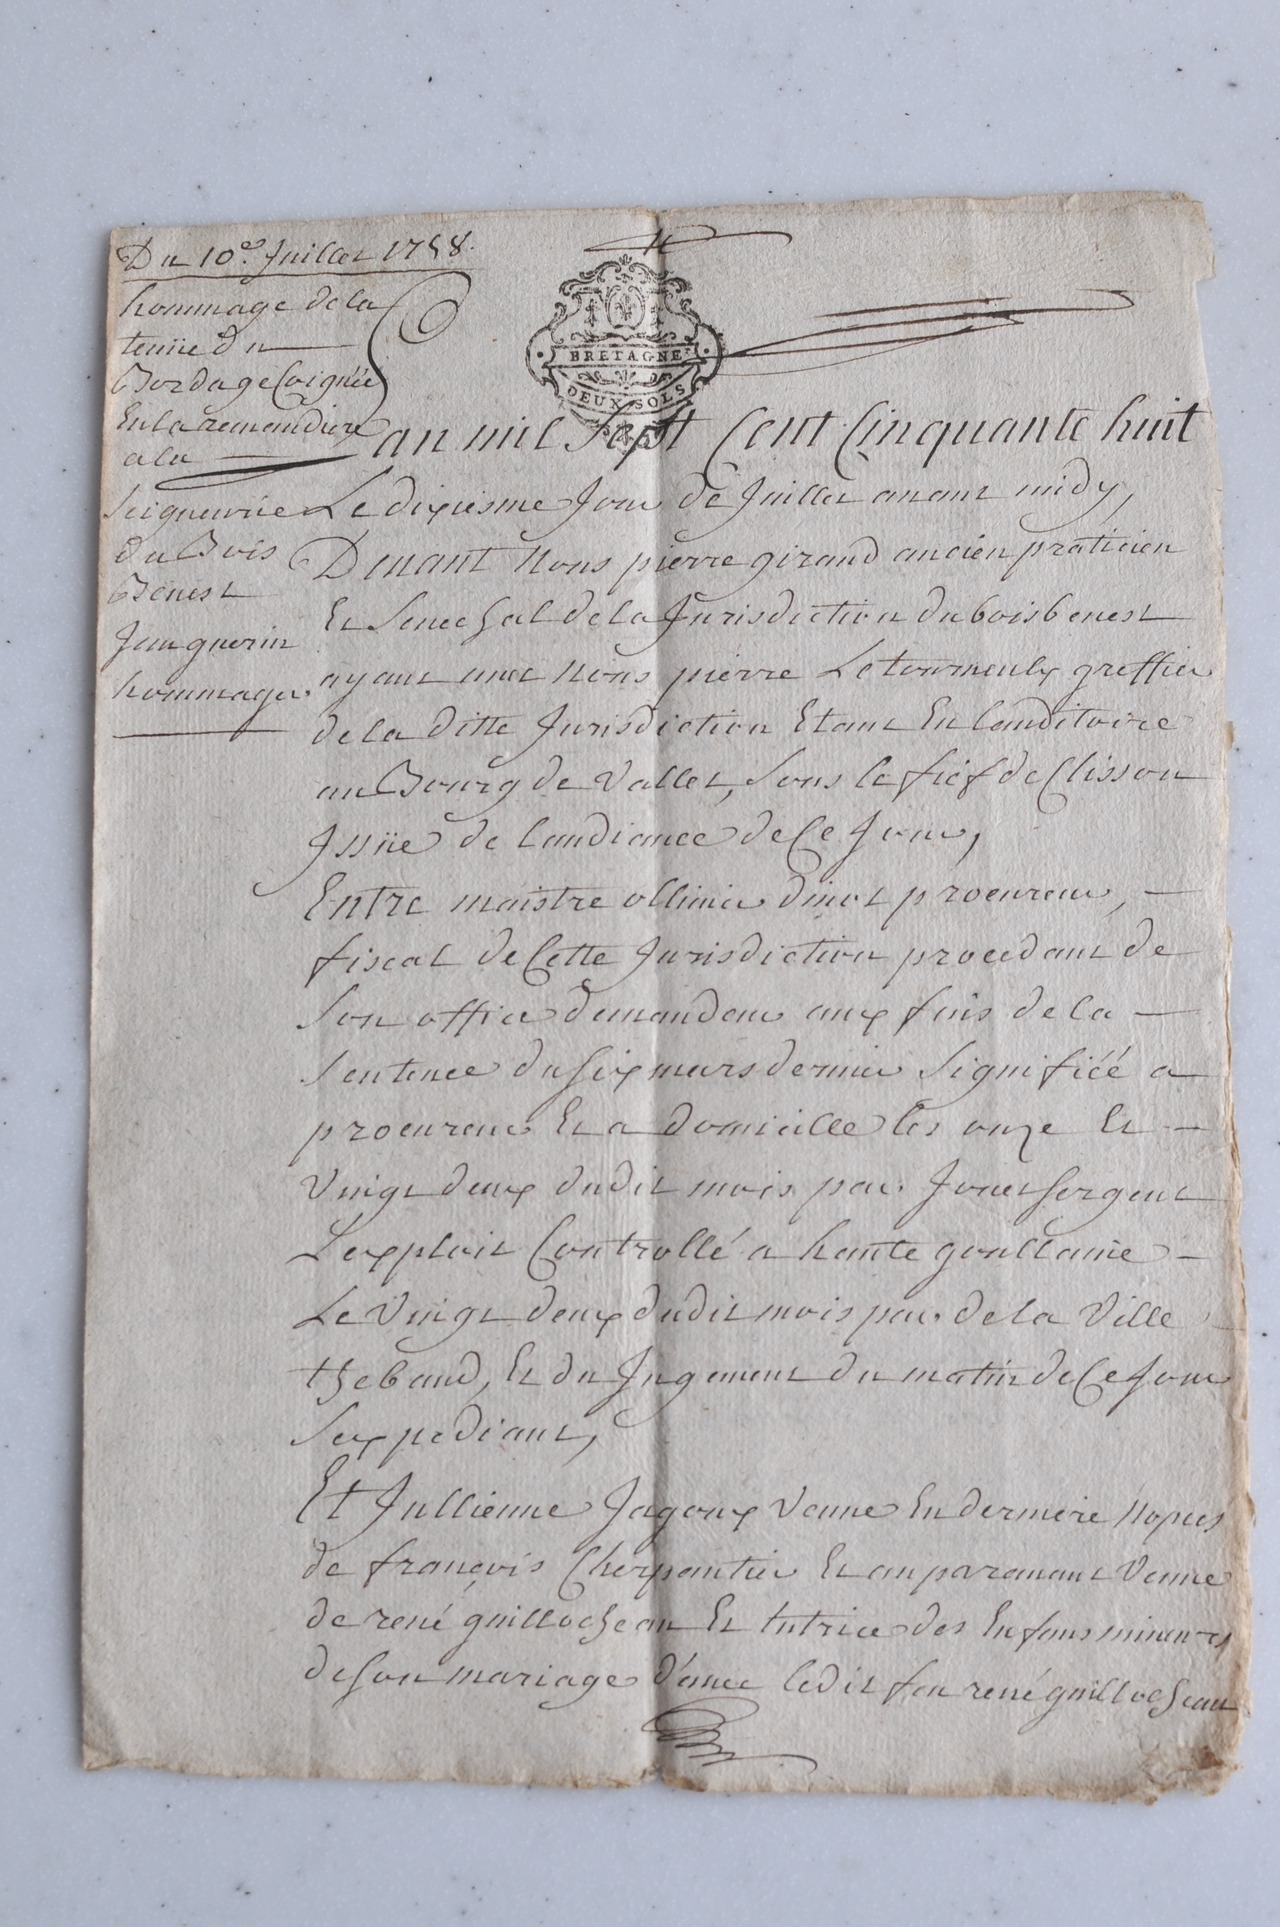 Du 10e. Juillet 1758.
hommage de la
tenüe du
Bordage Coignée
En la remaudiere
a la
Seigneurie
du Bois
Benest
Jan guerin
hommager.
BRETAGNE
DEUX SOLS
an mil Sept Cent Cinquante huit
Le dixiesme Jour de Juillet auant midy,
Deuant Nous pierre giraud ancien praticien
Et Senechal de la Jurisdiction du bois benest
ayant auec Nous pierre Letourneulx greffier
de la ditte Jurisdiction Etant En lauditoire
au Bourg de Vallet, Sous le fief de Clisson
Jssüe de laudiance de Ce Jour,
Entre maistre ollivier procureur,
fiscal de Cette Jurisdiction procedant de
Son office demandeur aux fins de la
Sentence du Six mars dernier Signifiéé a
procureur Et a domicille les onze Et
Vingt deux dudit mois par Sergent
Lexploit Controllé a haute goullaine
Le Vingt deux dudit mois par de la Ville
thebaud, Et du Jugement du matin de Ce Jour
Sexpediant,
Et Jullienne Jagoux Veuue En derniere Nopces
de françois Cherpantier Et auparauant Veuue
de rené guillocheau Et tutrice des Enfans mineurs
de Son mariage d'auec ledit feu rené guillocheau